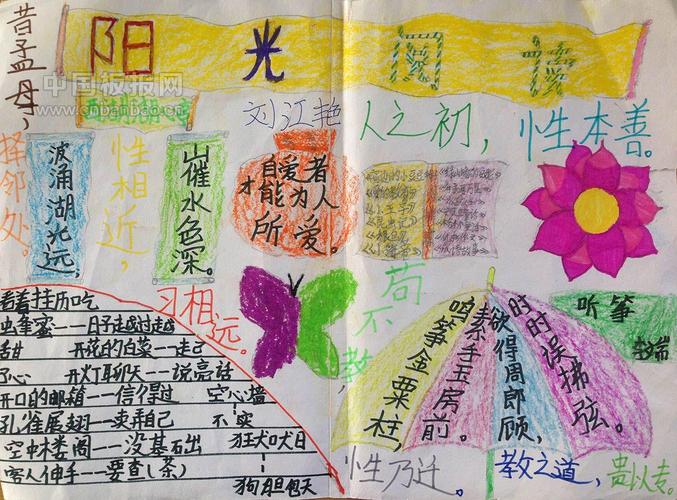 阳光阅读
中国板报网
www.cnbanbao.cn
昔孟母，
择邻处。
刘江艳
人之初，
性本善。
性相近，
习相远。
波涌湖光远，
山催水色深。
自爱者
才能为人
所爱。
苟不教，
性乃迁。
教之道，
贵以专。
听筝
李端
鸣筝金粟柱，
素手玉房前。
欲得周郎顾，
时时误拂弦。
看着挂历吃
蜂蜜——日子越过越
甜 开花的白菜——走己
了心 开灯聊天——说亮话
开口的邮箱——信得过 空心墙
孔雀展翅——卖弄自己 不实
空中楼阁——没基石出 狂犬吠日
客人伸手——要查（茶） 狗胆包天